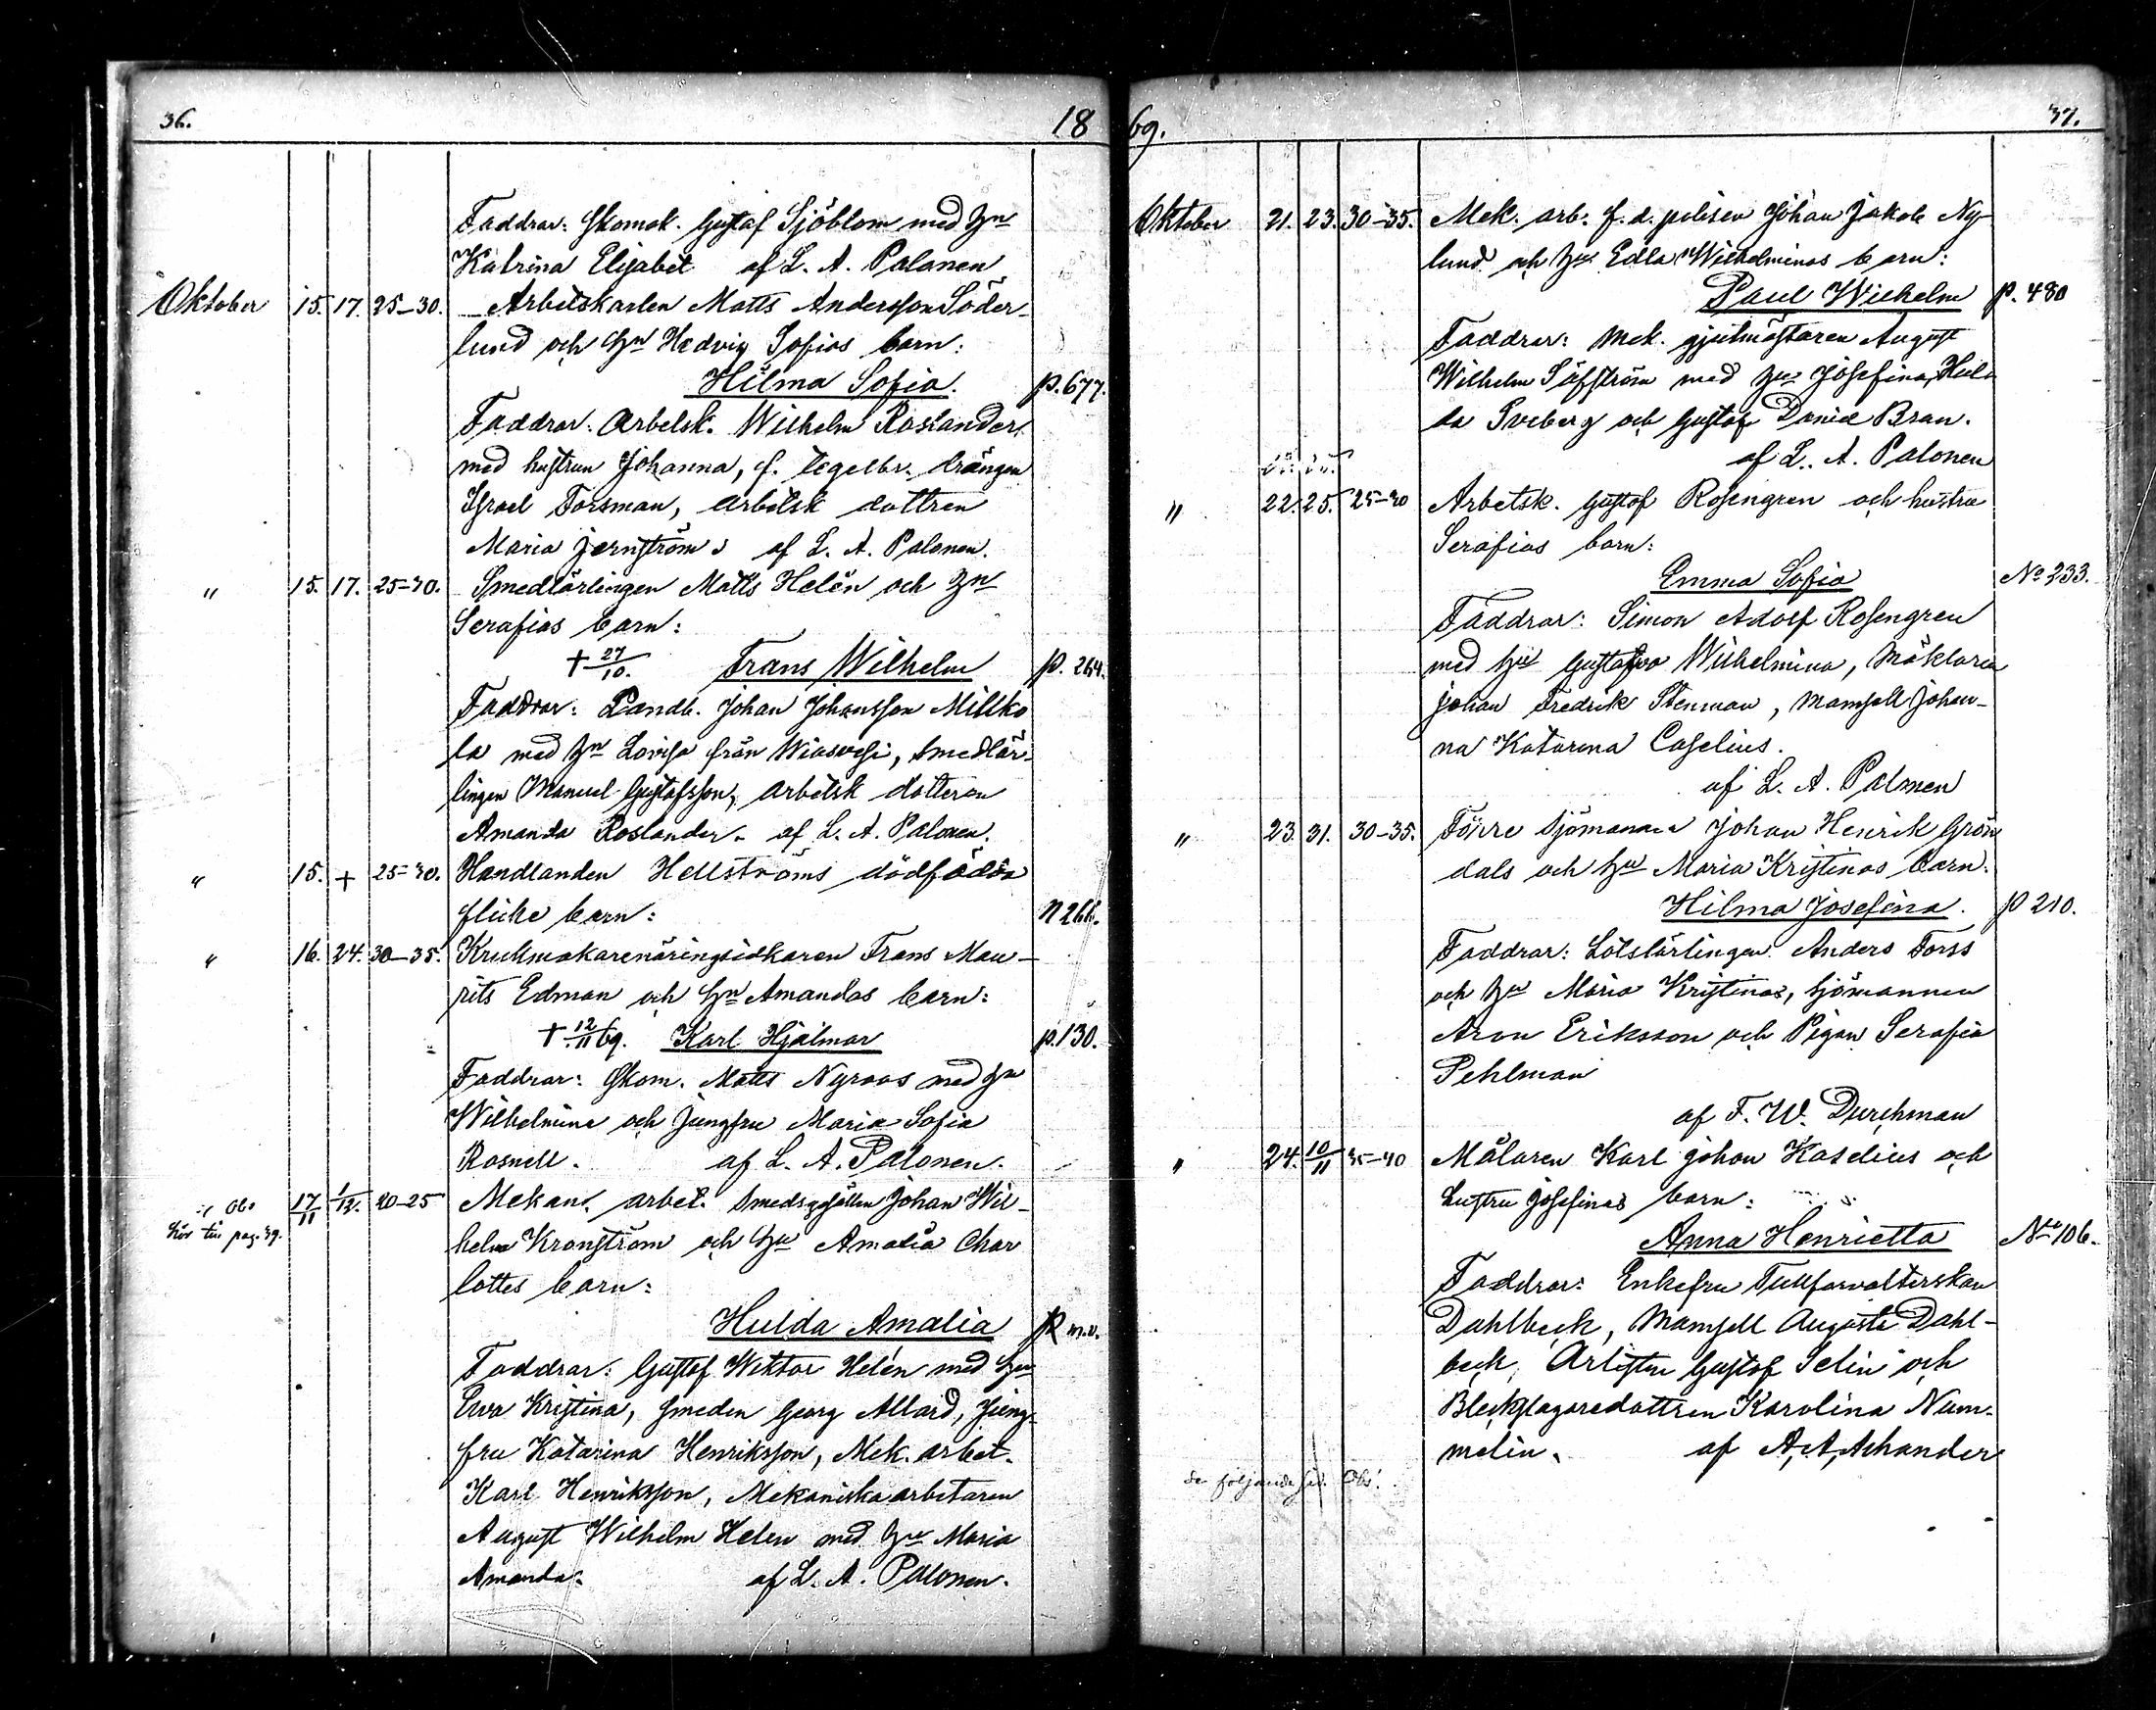 36. 18
Faddrar: Skomak. Gustaf Sjöblom med Hn
Katrina Elisabet af L. A. Palonen
Oktober 15. 17. 25-30. Arbetskarlen Matts Andersson Söder-
lund och Hn Hedvig Sofias barn:
Hilma Sofia. p. 677.
Faddrar: Arbetsk. Wilhelm Roslander
med hustrun Johanna, f. tegelbr. drängen
Israel Forsman, arbetsk dottren
Maria Jernström; af L. A. Palonen.
" 15. 17. 25-30. Smedlärlingen Matts Helén och Hn
Serafias barn:
+ 27/10. Frans Wilhelm p. 264.
Faddrar: Landb. Johan Johansson Millko
la med Hn Lovisa från Wiasvesi, Smedlär-
lingen Manuel Gustafsson, arbetsk dotteren
Amanda Roslander. af L. A. Palonen.
" 15. + 25-30. Handlanden Hellströms dödfödda
flicke barn: N 266.
" 16. 24. 30-35. Krukmakarenäringsidkaren Frans Mau-
rits Edman och Hn Amandas barn:
+ 12/11 69. Karl Hjalmar p. 130.
Faddrar: Skom. Matts Nyroos med Hn
Wilhelmina och Jungfru Maria Sofia
Rosnell. af L. A. Palonen.
Obs 17/11 1/12. 20-25 Mekan. arbet. Smedsgesällen Johan Wil-
hör till pag. 39.
helm Kronström och Hn Amalia Char
lottes barn:
Hulda Amalia p. m.v.
Faddrar: Gustof Wiktor Helén med Hn
Ewa Kristina, Smeden Georg Allard, Jung-
fru Katarina Henriksson, Mek. arbet.
Karl Henriksson, Mekaniska arbetaren
August Wilhelm Helen med Hn Maria
Amanda. af L. A. Palonen.
69. 37.
Oktober 21. 23. 30-35. Mek. arb. f. d. polisen Johan Jakob Ny-
lund och Hn Edla Wilhelminas barn:
Paul Wilhelm p. 480
Faddrar: Mek. gjutmästaren August
Wilhelm Säfström med Hn Josefina, Hul
da Sveberg och Gustaf David Bran.
af L. A. Palonen
" 22. 25. 25-30 Arbetsk. Gustof Rosengren och hustru
Serafias barn:
Emma Sofia No 233.
Faddrar: Simon Adolf Rosengren
med Hn Gustafva Wilhelmina, Mäklaren
Johan Fredrik Stenman, Mamsell Johan-
na Katarina Caselius.
af L. A. Palonen
" 23. 31. 30-35. Förre sjömannen Johan Henrik Grön
dals och Hn Maria Kristinas barn:
Hilma Josefina. p 210.
Faddrar: Lotslärlingen Anders Forss
och Hn Maria Kristinas, Sjömannen
Aron Eriksson och Pigan Serafia
Pehlman
af F. W. Durchman
" 24. 10/11 35-40 Målaren Karl Johan Kaselius och
hustru Josefinas barn:
Anna Henrietta No 106.
Faddrar: Enkefru Tullförvalterskan
Dahlbeck, Mamsell Augusta Dahl-
beck, Artisten Gustof Selin och
Bleckslagaredottren Karolina Num-
melin. af A. A. Ashander
se följande sid. Obs!